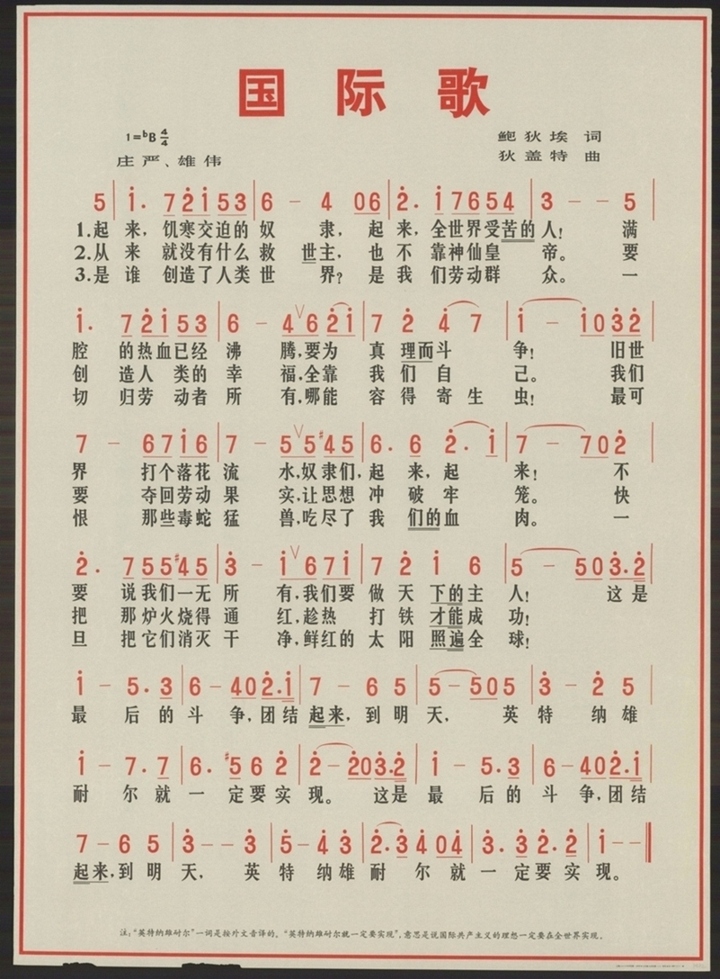 国际歌
1=ᵇB 4/4
鲍狄埃 词
庄严、雄伟
狄盖特 曲
5 | i. 7 2 i 5 3 | 6 - 4 0 6 | 2. i 7 6 5 4 | 3 - - 5 |
1.起 来,饥寒交迫的 奴 隶, 起 来,全世界受苦的 人! 满
2.从 来 就没有什么 救 世主, 也 不 靠神仙皇 帝。 要
3.是 谁 创造了人类 世 界? 是 我 们劳动群 众。 一
i. 7 2 i 5 3 | 6 - 4 V 6 2 i | 7 2 4 7 | i - i 0 3 2 |
腔 的热血已经 沸 腾,要为 真 理而斗 争! 旧世
创 造人 类的 幸 福,全靠 我 们 自 己。 我们
切 归劳 动者 所 有,哪能 容 得 寄 生 虫! 最可
7 - 6 7 i 6 | 7 - 5 V 5 #4 5 | 6. 6 2. i | 7 - 7 0 2 |
界 打个落花 流 水,奴隶们,起 来,起 来! 不
要 夺回劳动 果 实,让思想 冲 破 牢 笼。 快
恨 那些毒蛇 猛 兽,吃尽了 我 们的血 肉。 一
2. 7 5 5 #4 5 | 3 - i V i 6 7 i | 7 2 i 6 | 5 - 5 0 3. 2 |
要 说我们一无 所 有,我们要 做 天 下的主 人! 这是
把 那炉火烧得 通 红,趁热 打 铁 才能成 功!
旦 把它们消灭 干 净,鲜红的 太 阳 照遍全 球!
i - 5. 3 | 6 - 4 0 2. i | 7 - 6 5 | 5 - 5 0 5 | 3 - 2 5 |
最 后 的 斗 争,团结 起来,到 明 天, 英 特 纳 雄
i - 7. 7 | 6. #5 6 2 | 2 - 2 0 3. 2 | i - 5. 3 | 6 - 4 0 2. i |
耐 尔 就 一 定要实 现。 这是 最 后的 斗 争,团结
7 - 6 5 | 3 - - 3 | 5 - 4 3 | 2. 3 4 0 4 | 3. 3 2. 2 | i - - ‖
起来,到 明 天, 英 特 纳雄 耐 尔 就 一 定要实 现。
注:“英特纳雄耐尔”一词是按外文音译的。“英特纳雄耐尔就一定要实现”,意思是说国际共产主义的理想一定要在全世界实现。